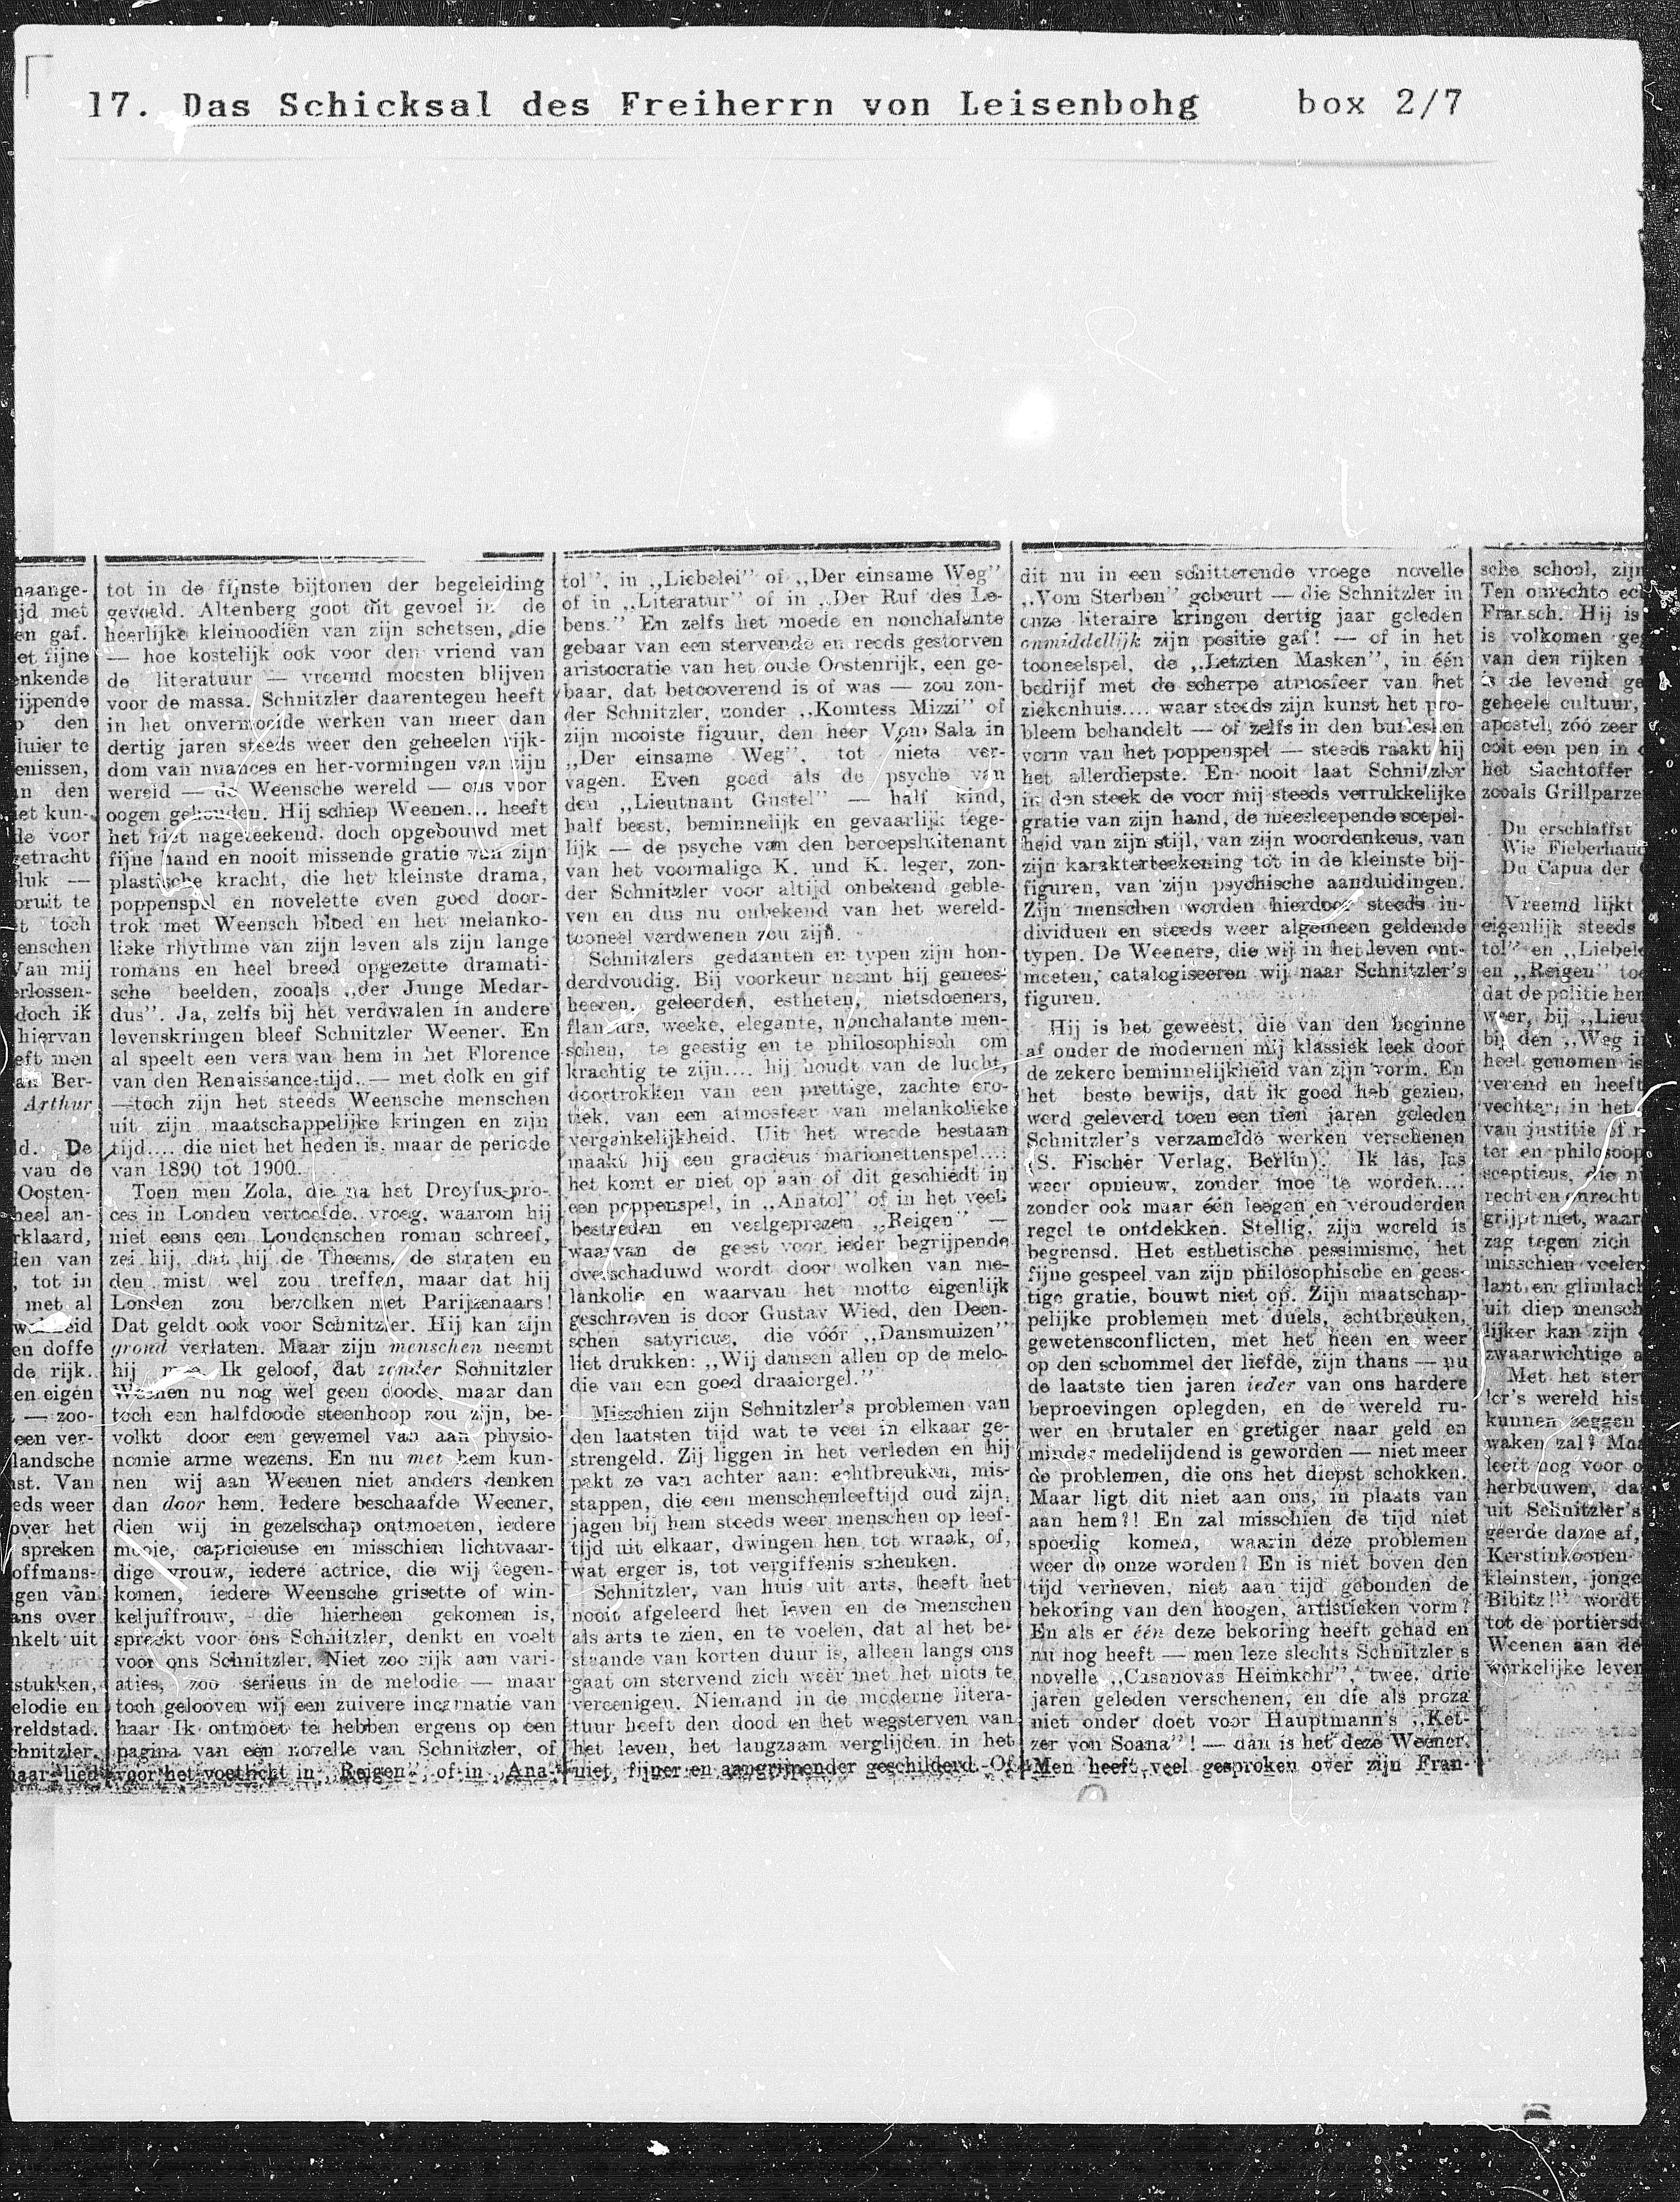 17. Das Schicksal des Freiherrn von Leisenbohg box 2/7
naange-
ijd met
en gaf.
et fijne
enkende
ijpende
den
luier te
enissen,
n den
et kun-
de voor
etracht
luk —
oruit te
t toch
enschen
Van mij
erlossen-
doch ik
hiervan
eft men
an Ber-
Arthur
ld. De
van de
Oosten-
heel an-
rklaard,
den van
, tot in
met al
en doffe
de rijk.
en eigen
— zoo-
een ver-
landsche
nst. Van
eds weer
over het
spreken
offmans-
gen van
ans over
nkelt uit
stukken,
elodie en
reldstad.
chnitzler.
haar lied
tot in de fijnste bijtonen der begeleiding
gevoeld. Altenberg goot dit gevoel in de
heerlijke kleinoodiën van zijn schetsen, die
— hoe kostelijk ook voor den vriend van
de literatuur — vreemd moesten blijven
voor de massa. Schnitzler daarentegen heeft
in het onvermoeide werken van meer dan
dertig jaren steeds weer den geheelen rijk-
dom van nuances en her-vormingen van zijn
wereld — de Weensche wereld — ons voor
oogen gehouden. Hij schiep Weenen... heeft
het niet nageteekend, doch opgebouwd met
fijne hand en nooit missende gratie van zijn
plastische kracht, die het kleinste drama,
poppenspel en novelette even goed door-
trok met Weensch bloed en het melanko-
lieke rhythme van zijn leven als zijn lange
romans en heel breed opgezette dramati-
sche beelden, zooals „der Junge Medar-
dus”. Ja, zelfs bij het verdwalen in andere
levenskringen bleef Schnitzler Weener. En
al speelt een vers van hem in het Florence
van den Renaissance-tijd, — met dolk en gif
— toch zijn het steeds Weensche menschen
uit zijn maatschappelijke kringen en zijn
tijd.... die niet het heden is, maar de periode
van 1890 tot 1900.
Toen men Zola, die na het Dreyfus-pro-
ces in Londen vertoefde, vroeg, waarom hij
niet eens een Londenschen roman schreef,
zei hij, dat hij de Theems, de straten en
den mist wel zou treffen, maar dat hij
Londen zou bevolken met Parijzenaars!
Dat geldt ook voor Schnitzler. Hij kan zijn
grond verlaten. Maar zijn menschen neemt
hij mee. Ik geloof, dat zonder Schnitzler
Weenen nu nog wel geen doode, maar dan
toch een halfdoode steenhoop zou zijn, be-
volkt door een gewemel van aan physio-
nomie arme wezens. En nu met hem kun-
nen wij aan Weenen niet anders denken
dan door hem. Iedere beschaafde Weener,
dien wij in gezelschap ontmoeten, iedere
mooie, capricieuse en misschien lichtvaar-
dige vrouw, iedere actrice, die wij tegen-
komen, iedere Weensche grisette of win-
keljuffrouw, die hierheen gekomen is,
spreekt voor ons Schnitzler, denkt en voelt
voor ons Schnitzler. Niet zoo rijk aan vari-
aties, zoo serieus in de melodie — maar
toch gelooven wij een zuivere incarnatie van
haar Ik ontmoet te hebben ergens op een
pagina van een novelle van Schnitzler, of
voor het voetlicht in „Reigen”, of in „Ana-
tol”, in „Liebelei” of „Der einsame Weg”
of in „Literatur” of in „Der Ruf des Le-
bens.” En zelfs het moede en nonchalante
gebaar van een stervende en reeds gestorven
aristocratie van het oude Oostenrijk, een ge-
baar, dat betooverend is of was — zou zon-
der Schnitzler, zonder „Komtess Mizzi” of
zijn mooiste figuur, den heer Von Sala in
„Der einsame Weg”, tot niets ver-
vagen. Even goed als de psyche van
den „Lieutnant Gustel” — half kind,
half beest, beminnelijk en gevaarlijk tege-
lijk — de psyche van den beroepsluitenant
van het voormalige K. und K. leger, zon-
der Schnitzler voor altijd onbekend geble-
ven en dus nu onbekend van het wereld-
tooneel verdwenen zou zijn.
Schnitzlers gedaanten en typen zijn hon-
derdvoudig. Bij voorkeur neemt hij genees-
heeren, geleerden, estheten, nietsdoeners,
flaneurs, weeke, elegante, nonchalante men-
schen, te geestig en te philosophisch om
krachtig te zijn.... hij houdt van de lucht,
doortrokken van een prettige, zachte ero-
tiek, van een atmosfeer van melankolieke
vergankelijkheid. Uit het wreede bestaan
maakt hij een gracieus marionettenspel....:
het komt er niet op aan of dit geschiedt in
een poppenspel, in „Anatol” of in het veel-
bestreden en veelgeprezen „Reigen” —
waarvan de geest voor ieder begrijpende
overschaduwd wordt door wolken van me-
lankolie en waarvan het motto eigenlijk
geschreven is door Gustav Wied, den Deen-
schen satyricus, die vóór „Dansmuizen”
liet drukken: „Wij dansen allen op de melo-
die van een goed draaiorgel.”
Misschien zijn Schnitzler's problemen van
den laatsten tijd wat te veel in elkaar ge-
strengeld. Zij liggen in het verleden en hij
pakt ze van achter aan: echtbreuken, mis-
stappen, die een menschenleeftijd oud zijn,
jagen bij hem steeds weer menschen op leef-
tijd uit elkaar, dwingen hen tot wraak, of,
wat erger is, tot vergiffenis schenken.
Schnitzler, van huis uit arts, heeft het
nooit afgeleerd het leven en de menschen
als arts te zien, en te voelen, dat al het be-
staande van korten duur is, alleen langs ons
gaat om stervend zich weer met het niets te
vereenigen. Niemand in de moderne litera-
tuur heeft den dood en het wegsterven van
het leven, het langzaam verglijden in het
niet, fijner en aangrijpender geschilderd. Of
dit nu in een schitterende vroege novelle
„Vom Sterben” gebeurt — die Schnitzler in
onze literaire kringen dertig jaar geleden
onmiddellijk zijn positie gaf! — of in het
tooneelspel, de „Letzten Masken”, in één
bedrijf met de scherpe atmosfeer van het
ziekenhuis.... waar steeds zijn kunst het pro-
bleem behandelt — of zelfs in den burlesken
vorm van het poppenspel — steeds raakt hij
het allerdiepste. En nooit laat Schnitzler
in den steek de voor mij steeds verrukkelijke
gratie van zijn hand, de meesleepende soepel-
heid van zijn stijl, van zijn woordenkeus, van
zijn karakterteekening tot in de kleinste bij-
figuren, van zijn psychische aanduidingen.
Zijn menschen worden hierdoor steeds in-
dividuen en steeds weer algemeen geldende
typen. De Weeners, die wij in het leven ont-
moeten, catalogiseeren wij naar Schnitzler's
figuren.
Hij is het geweest, die van den beginne
af onder de modernen mij klassiek leek door
de zekere beminnelijkheid van zijn vorm. En
het beste bewijs, dat ik goed heb gezien,
werd geleverd toen een tien jaren geleden
Schnitzler's verzamelde werken verschenen
(S. Fischer Verlag, Berlin). Ik las, las
weer opnieuw, zonder moe te worden....
zonder ook maar één leegen en verouderden
regel te ontdekken. Stellig, zijn wereld is
begrensd. Het esthetische pessimisme, het
fijne gespeel van zijn philosophische en gees-
tige gratie, bouwt niet op. Zijn maatschap-
pelijke problemen met duels, echtbreuken,
gewetensconflicten, met het heen en weer
op den schommel der liefde, zijn thans — nu
de laatste tien jaren ieder van ons hardere
beproevingen oplegden, en de wereld ru-
wer en brutaler en gretiger naar geld en
minder medelijdend is geworden — niet meer
de problemen, die ons het diepst schokken.
Maar ligt dit niet aan ons, in plaats van
aan hem?! En zal misschien de tijd niet
spoedig komen, waarin deze problemen
weer de onze worden? En is niet boven den
tijd verheven, niet aan tijd gebonden de
bekoring van den hoogen, artistieken vorm?
En als er één deze bekoring heeft gehad en
nu nog heeft — men leze slechts Schnitzler's
novelle „Casanovas Heimkehr”, twee, drie
jaren geleden verschenen, en die als proza
niet onder doet voor Hauptmann's „Ket-
zer von Soana”! — dan is het deze Weener.
Men heeft veel gesproken over zijn Fran-
sche school, zijn
Ten onrechte ech
Fransch. Hij is
is volkomen ge
van den rijken
is de levend ge
geheele cultuur,
apostel, zóó zeer
ooit een pen in
het slachtoffer
zooals Grillparze
Du erschlaffst
Wie Fieberhauc
Du Capua der
Vreemd lijkt
eigenlijk steeds
tol” en „Liebel
en „Reigen” to
dat de politie her
weer, bij „Lieu
bij den „Weg i
heel genomen is
verend en heeft
vechter, in het
van justitie of r
ter en philosoop
scepticus, die n
recht en onrecht
grijpt niet, waar
zag tegen zich
misschien veeler
lant en glimlach
uit diep mensch
lijker kan zijn
zwaarwichtige a
Met het ster
ler's wereld his
kunnen zeggen
waken zal? Maa
leeft nog voor o
herbouwen, da
uit Schnitzler's
geerde dame af,
Kerstinkoopen
kleinsten, jonge
Bibitz!” wordt
tot de portiersd
Weenen aan de
werkelijke lever